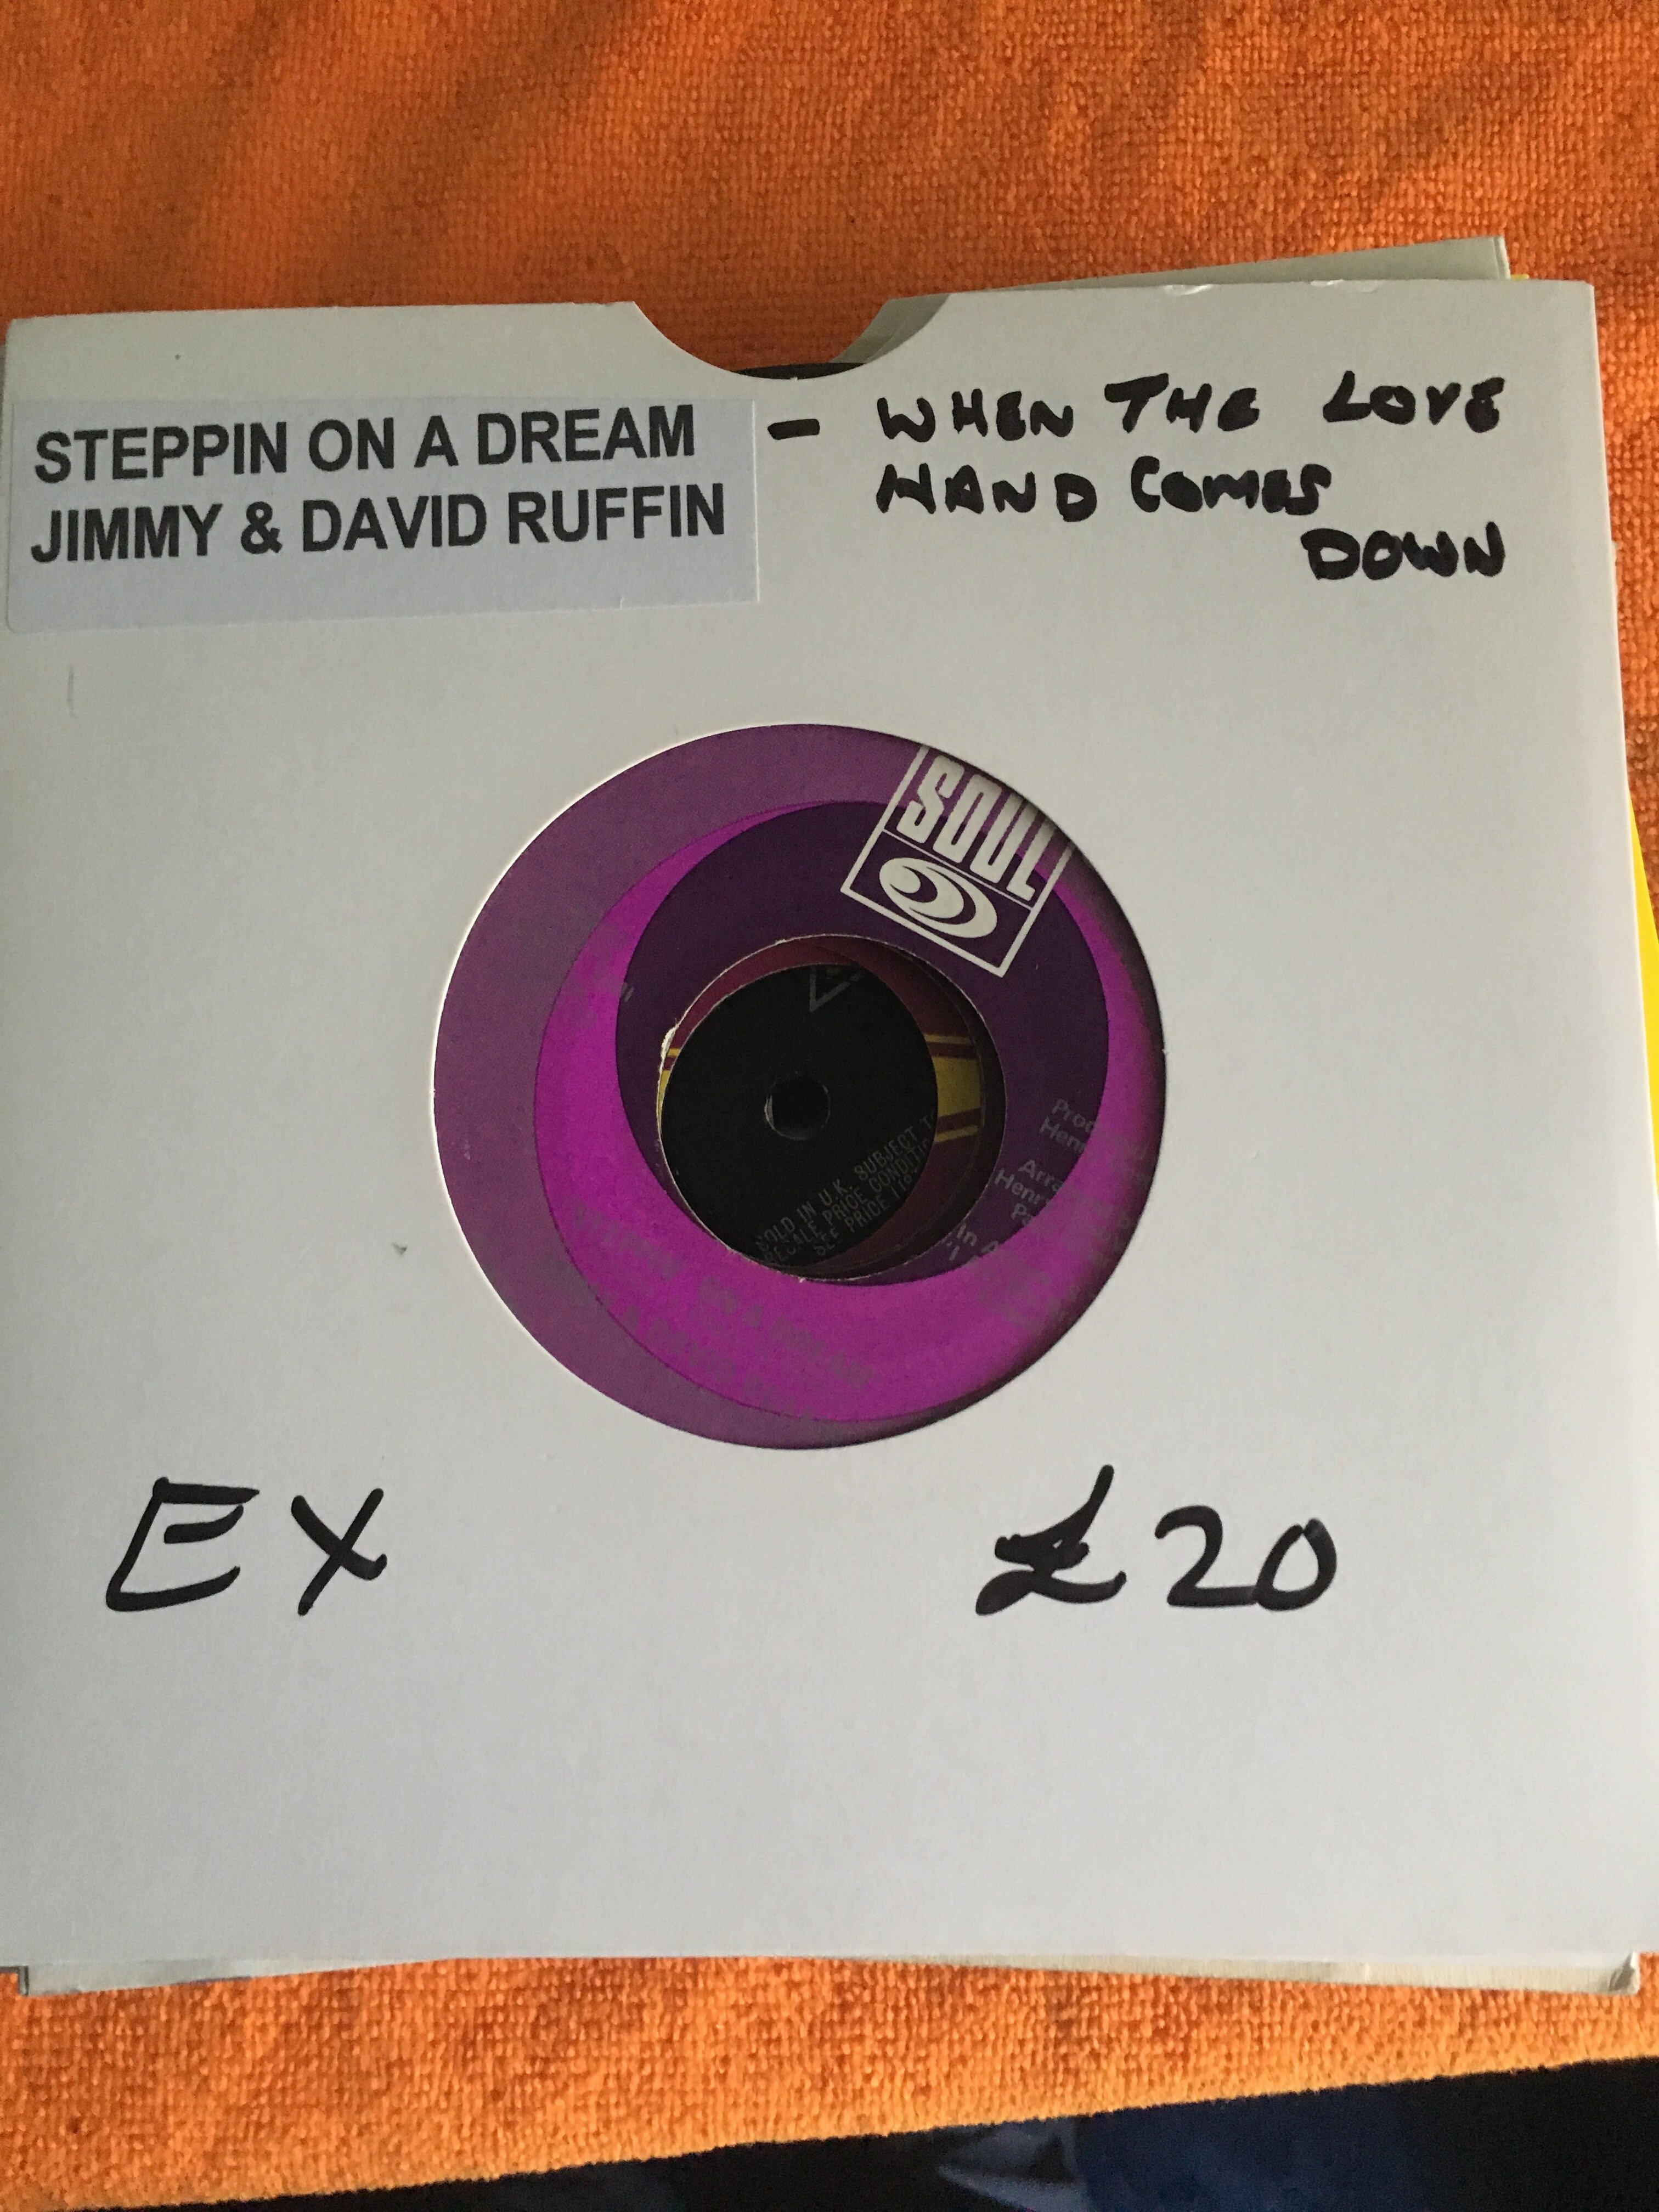 STEPPIN ON A DREAM
JIMMY & DAVID RUFFIN
- WHEN THE LOVE
HAND COMES
DOWN
SOUL
STEPPIN' ON A DREAM
SOLD IN U.K. SUBJECT T
RESALE PRICE CONDITIO
SEE PRICE LIS
EX
£20